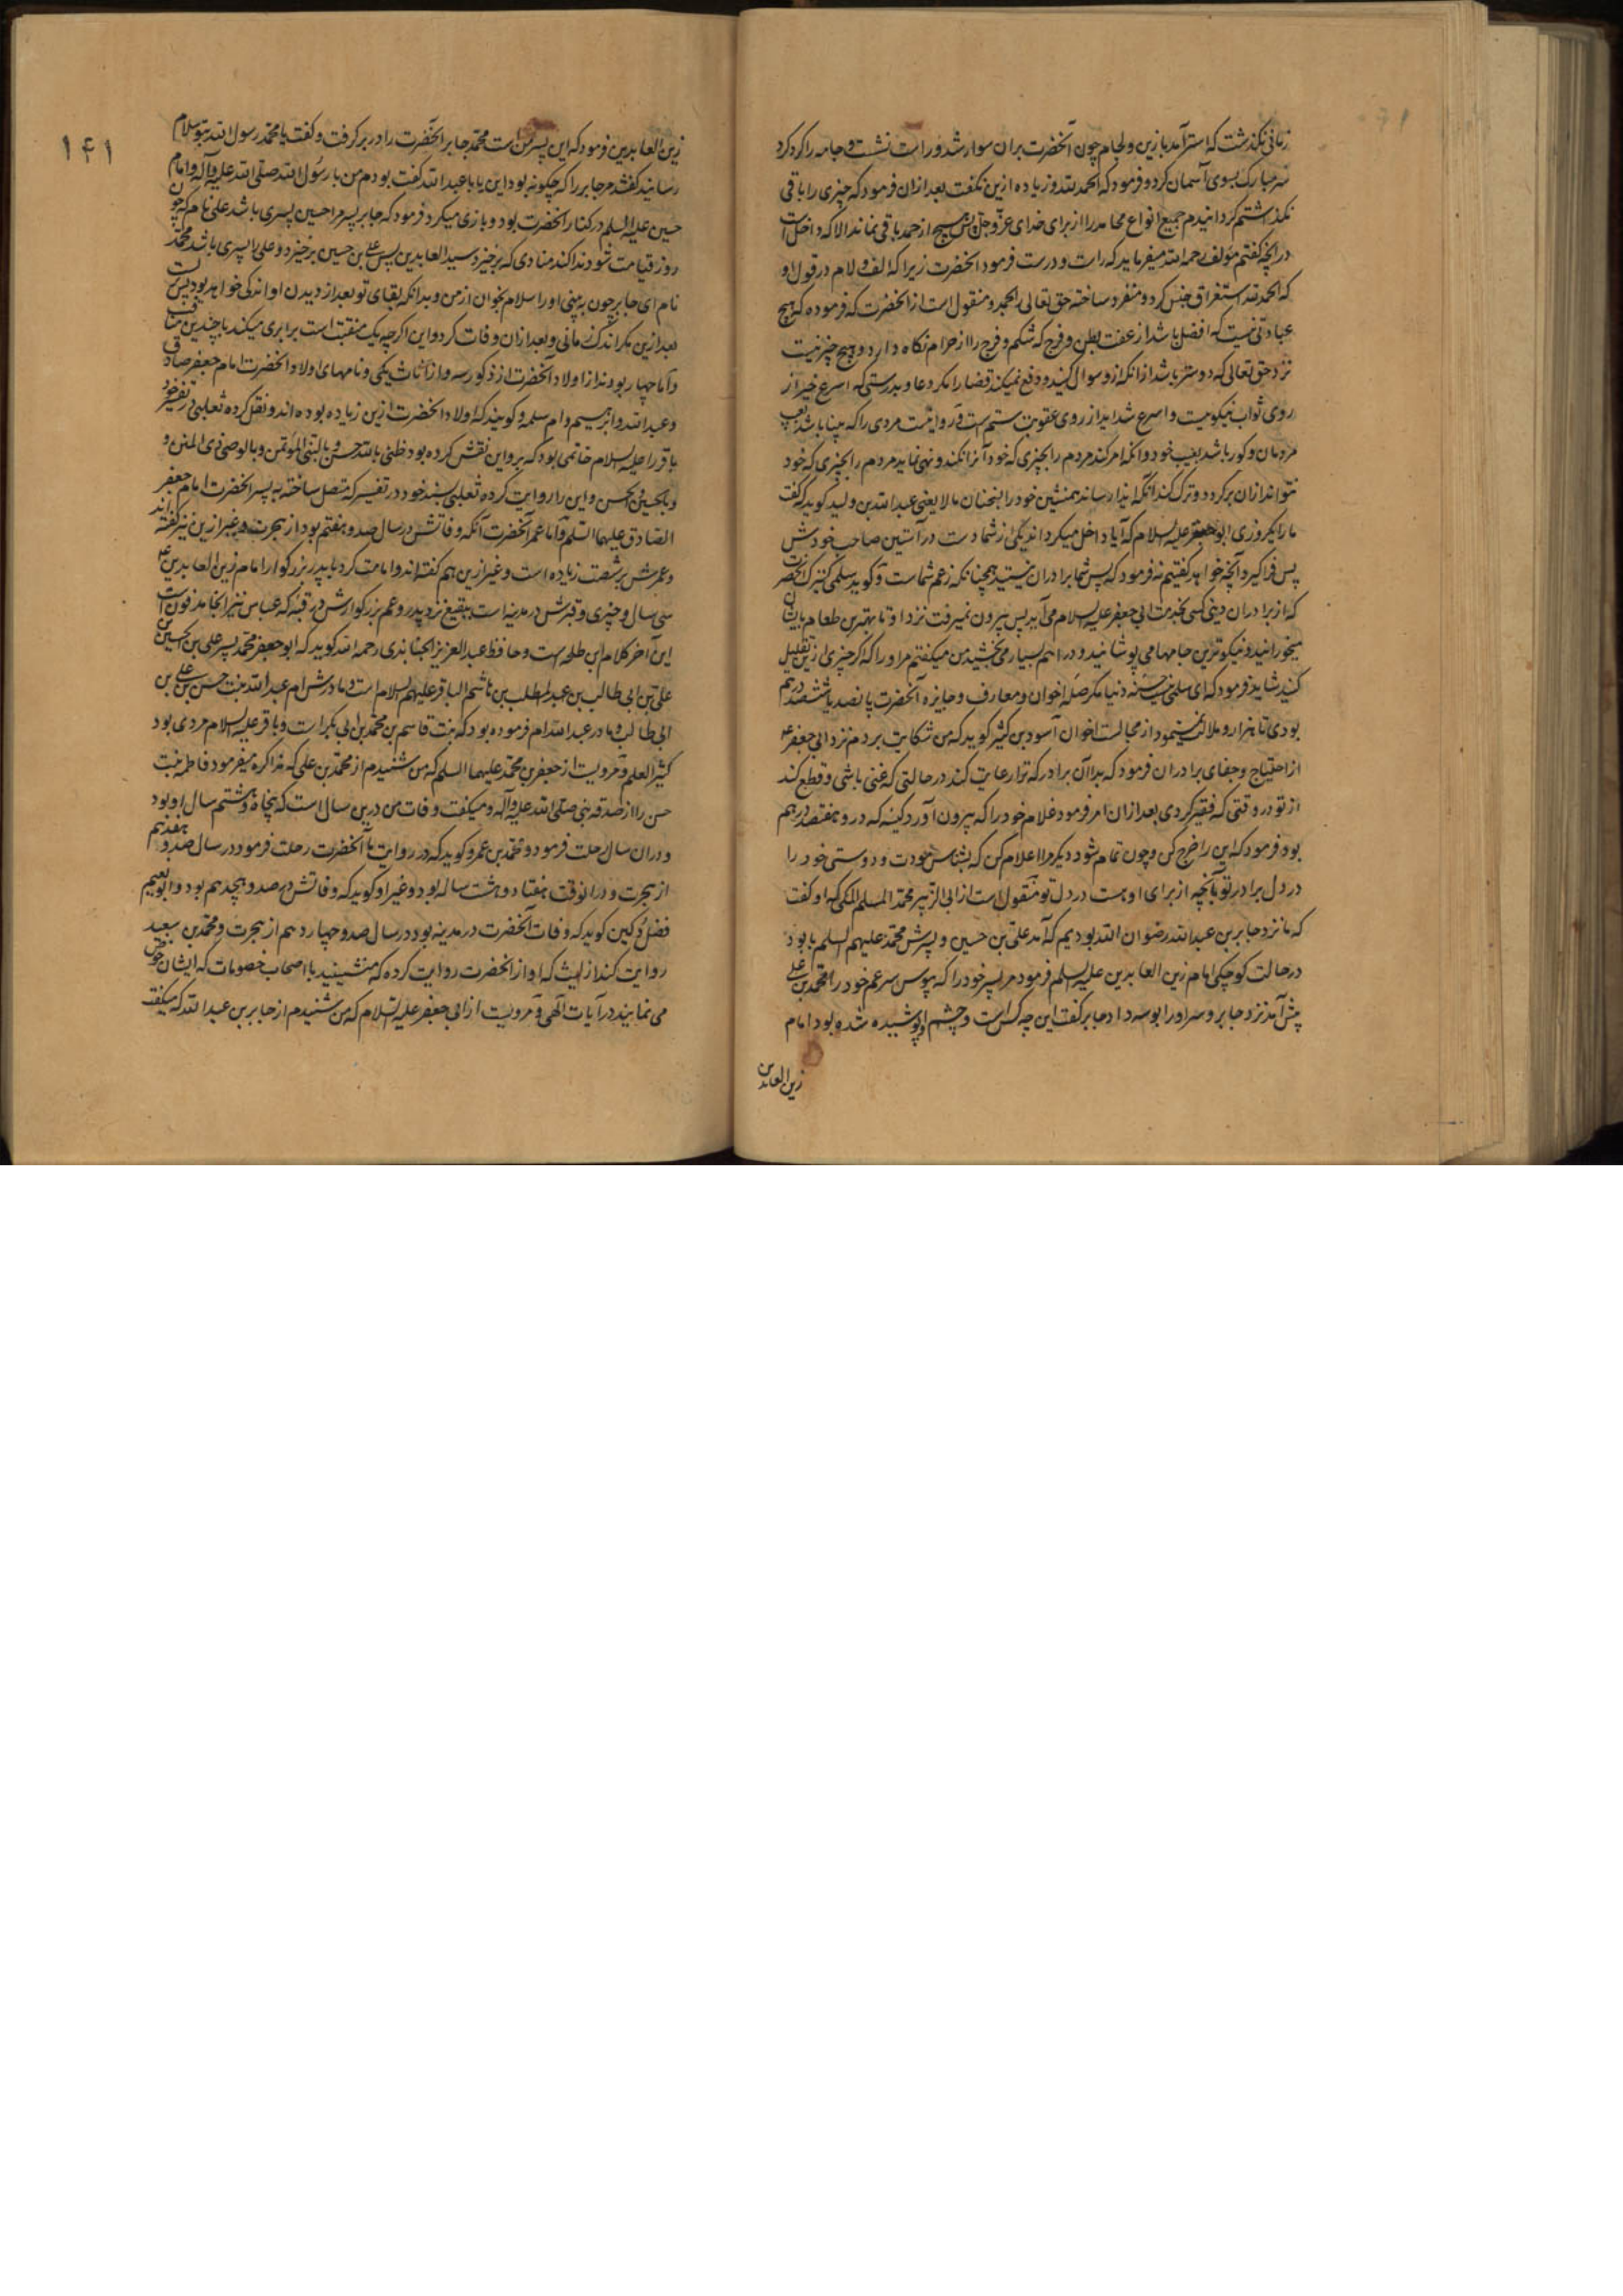 زمانی نکذشت که استر آمد با زین و لجام چون آنحضرت بران سوار شد و راست نشست و جامه را کرد کرد
سر مبارک بسوی آسمان کرد و فرمود که الحمد لله و زیاده ازین نکفت بعد ازان فرمود که چیزی را باقی
نکذاشتم کردانیدم جمیع انواع محامد را از برای خدای عز و جل پس هیچ از حمد باقی نماند الا که داخل است
در آنچه کفتم مؤلف رحمه الله میفرماید که راست و درست فرمود آنحضرت زیرا که الف و لام در قول او
که الحمد لله استغراق جنس کرد و منفرد ساخته حق تعالی را بحمد و منقول است از آنحضرت که فرموده که هیچ
عبادتی نیست که افضل باشد از عفت بطن و فرج که شکم و فرج را از حرام نکاه دارد و هیچ چیز نیست
نزد حق تعالی که دوستر باشد از آنکه ازو سوال کنند و دفع نمیکند قضا را مکر دعا و بدرستی که اسرع خیر از
روی ثواب نیکوییست و اسرع شداید از روی عقوبت ستم است و روا نیست مردی را که بینا باشد بعیب
مردمان و کور باشد بعیب خود و انکه امر کند مردم را بچیزی که خود آنرا نکند و نهی نماید مردم را بچیزی که خود
نتواند ازان بر کردد و ترک کند انکه ایذا رساند همنشین خود را بسخنان مالا یعنی عبد الله بن ولید کوید که کفت
ما را یکروزی ابو جعفر علیه السلام که آیا داخل میکرداند یکی از شما دست در آستین صاحب خودش
پس فرا کیرد آنچه خواهد کفتیم نه فرمود که پس شما برادران نیستید همچنانکه زعم شماست و کوید سلمی کنیزک آنحضرت
که از برادران دینی کسی بخدمت ابی جعفر علیه السلام می آید پس بیرون نمیرفت نزد او تا بهترین طعام بایشان
میخورانید و نیکوترین جامها می پوشانید و دراهم بسیار می بخشید من میکفتم مر او را که اکر چیزی ازین تقلیل
کنید شاید فرمود که ای سلمی نیست حسنه دنیا مکر صله اخوان و معارف و جایزه آنحضرت پانصد یا ششصد درهم
بودی تا هزار و ملال نمینمود از مجالست اخوان آسود بن کثیر کوید که من شکایت بردم نزد ابی جعفر ع
از احتیاج و جفای برادران فرمود که بد آن برادر که ترا رعایت کند در حالتی که غنی باشی و قطع کند
از تو در وقتی که فقیر کردی بعد ازان امر فرمود غلام خود را که بیرون آورد کیسه که درو هفتصد درهم
بود فرمود که این را خرج کن و چون تمام شود دیکر مرا اعلام کن که بشناس مودت و دوستی خود را
در دل برادر تو بآنچه از برای او هست در دل تو منقول است از ابی الزبیر محمد المسلم المکی که او کفت
که ما نزد جابر بن عبد الله رضوان الله بودیم که آمد علی بن حسین و پسرش محمد علیهم السلم با بود
در حالت کوچکی امام زین العابدین علیه السلم فرمود مر پسر خود را که ببوس سر عم خود را محمد بن علی
پیش آمد نزد جابر و سر او را بوسه داد جابر کفت این چه کس است و چشم او پوشیده شده بود امام
زین العابدین
۱۴۱
زین العابدین فرمود که این پسر من است محمد جابر آنحضرت را در بر کرفت و کفت یا محمد رسول الله بتو سلام
رسانید کفتند مر جابر را که چکونه بود این یا با عبد الله کفت بودم من با رسول الله صلی الله علیه و آله و امام
حسین علیه السلم در کنار آنحضرت بود و بازی میکرد فرمود که جابر پسر مرا حسین پسری باشد علی نام که چون
روز قیامت شود ندا کند منادی که برخیزد سید العابدین پس علی بن حسین بر خیزد و علی را پسری باشد محمد
نام ای جابر چون ببینی او را سلام بخوان از من و بدانکه بقای تو بعد از دیدن او اندکی خواهد بود پس نزیست
بعد ازین مکر اندک زمانی و بعد ازان وفات کرد و این اکرچه یک منقبت است برابری میکند با چندین مناقب
و اما چهار بودند از اولاد آنحضرت از ذکور سه و از اناث یکی و نامهای اولاد آنحضرت امام جعفر صادق
و عبد الله و ابرهیم و ام سلمه و کویند که اولاد آنحضرت ازین زیاده بوده اند و نقل کرده ثعلبی در تفسیر خود
باقر را علیه السلام خاتمی بود که برو این نقش کرده بود ظنی بالله حسن و بالنبی المؤتمن و بالوصی ذی المنن و
و بالحسین و الحسن و این را روایت کرده ثعلبی بسند خود در تفسیر که متصل ساخته به پسر آنحضرت امام جعفر
الصادق علیهما السلم و اما عمر آنحضرت آنکه وفاتش در سال صد و هفتم بود از هجرت و غیر ازین نیز کفته اند
و عمرش بر شصت زیاده است و غیر ازین هم کفته اند و امامت کرد با پدر بزرکوار امام زین العابدین ع
سی سال و چیزی و قبرش در مدینه است ببقیع نزد پدر و عم بزرکوارش در قبه که عباس نیز آنجا مدفون است
این آخر کلام ابن طلحه است و حافظ عبد العزیز الجنابذی رحمه الله کوید که ابو جعفر محمد پسر علی بن الحسین بن
علی بن ابی طالب بن عبد المطلب بن هاشم الباقر علیهم السلام است و مادرش ام عبد الله بنت حسن بن علی بن
ابی طالب و مادر عبد الله ام فرموده بود که بنت قاسم بن محمد بن ابی بکر است و باقر علیه السلام مردی بود
کثیر العلم و مرویست از جعفر بن محمد علیهما السلم که من شنیدم از محمد بن علی که مذاکره میفرمود فاطمه بنت
حسن را از صدقه نبی صلی الله علیه و آله و میکفت وفات من درین سال است که پنجاه و هشتم سال او بود
و دران سال رحلت فرمود و محمد بن عمرو کوید که در روایت ما آنحضرت رحلت فرمود در سال صد و هفدهم
از هجرت و در آنوقت هفتاد و هشت ساله بود و غیر او کوید که وفاتش در صد و هجدهم بود و ابو نعیم
فضل دکین کوید که وفات آنحضرت در مدینه بود در سال صد و چهاردهم از هجرت و محمد بن سعید
روایت کند از لیث که او از آنحضرت روایت کرده که منشینید با اصحاب خصومات که ایشان خوض
می نمایند در آیات الهی و مرویست از ابی جعفر علیه السلام که من شنیدم از جابر بن عبد الله که میکفت